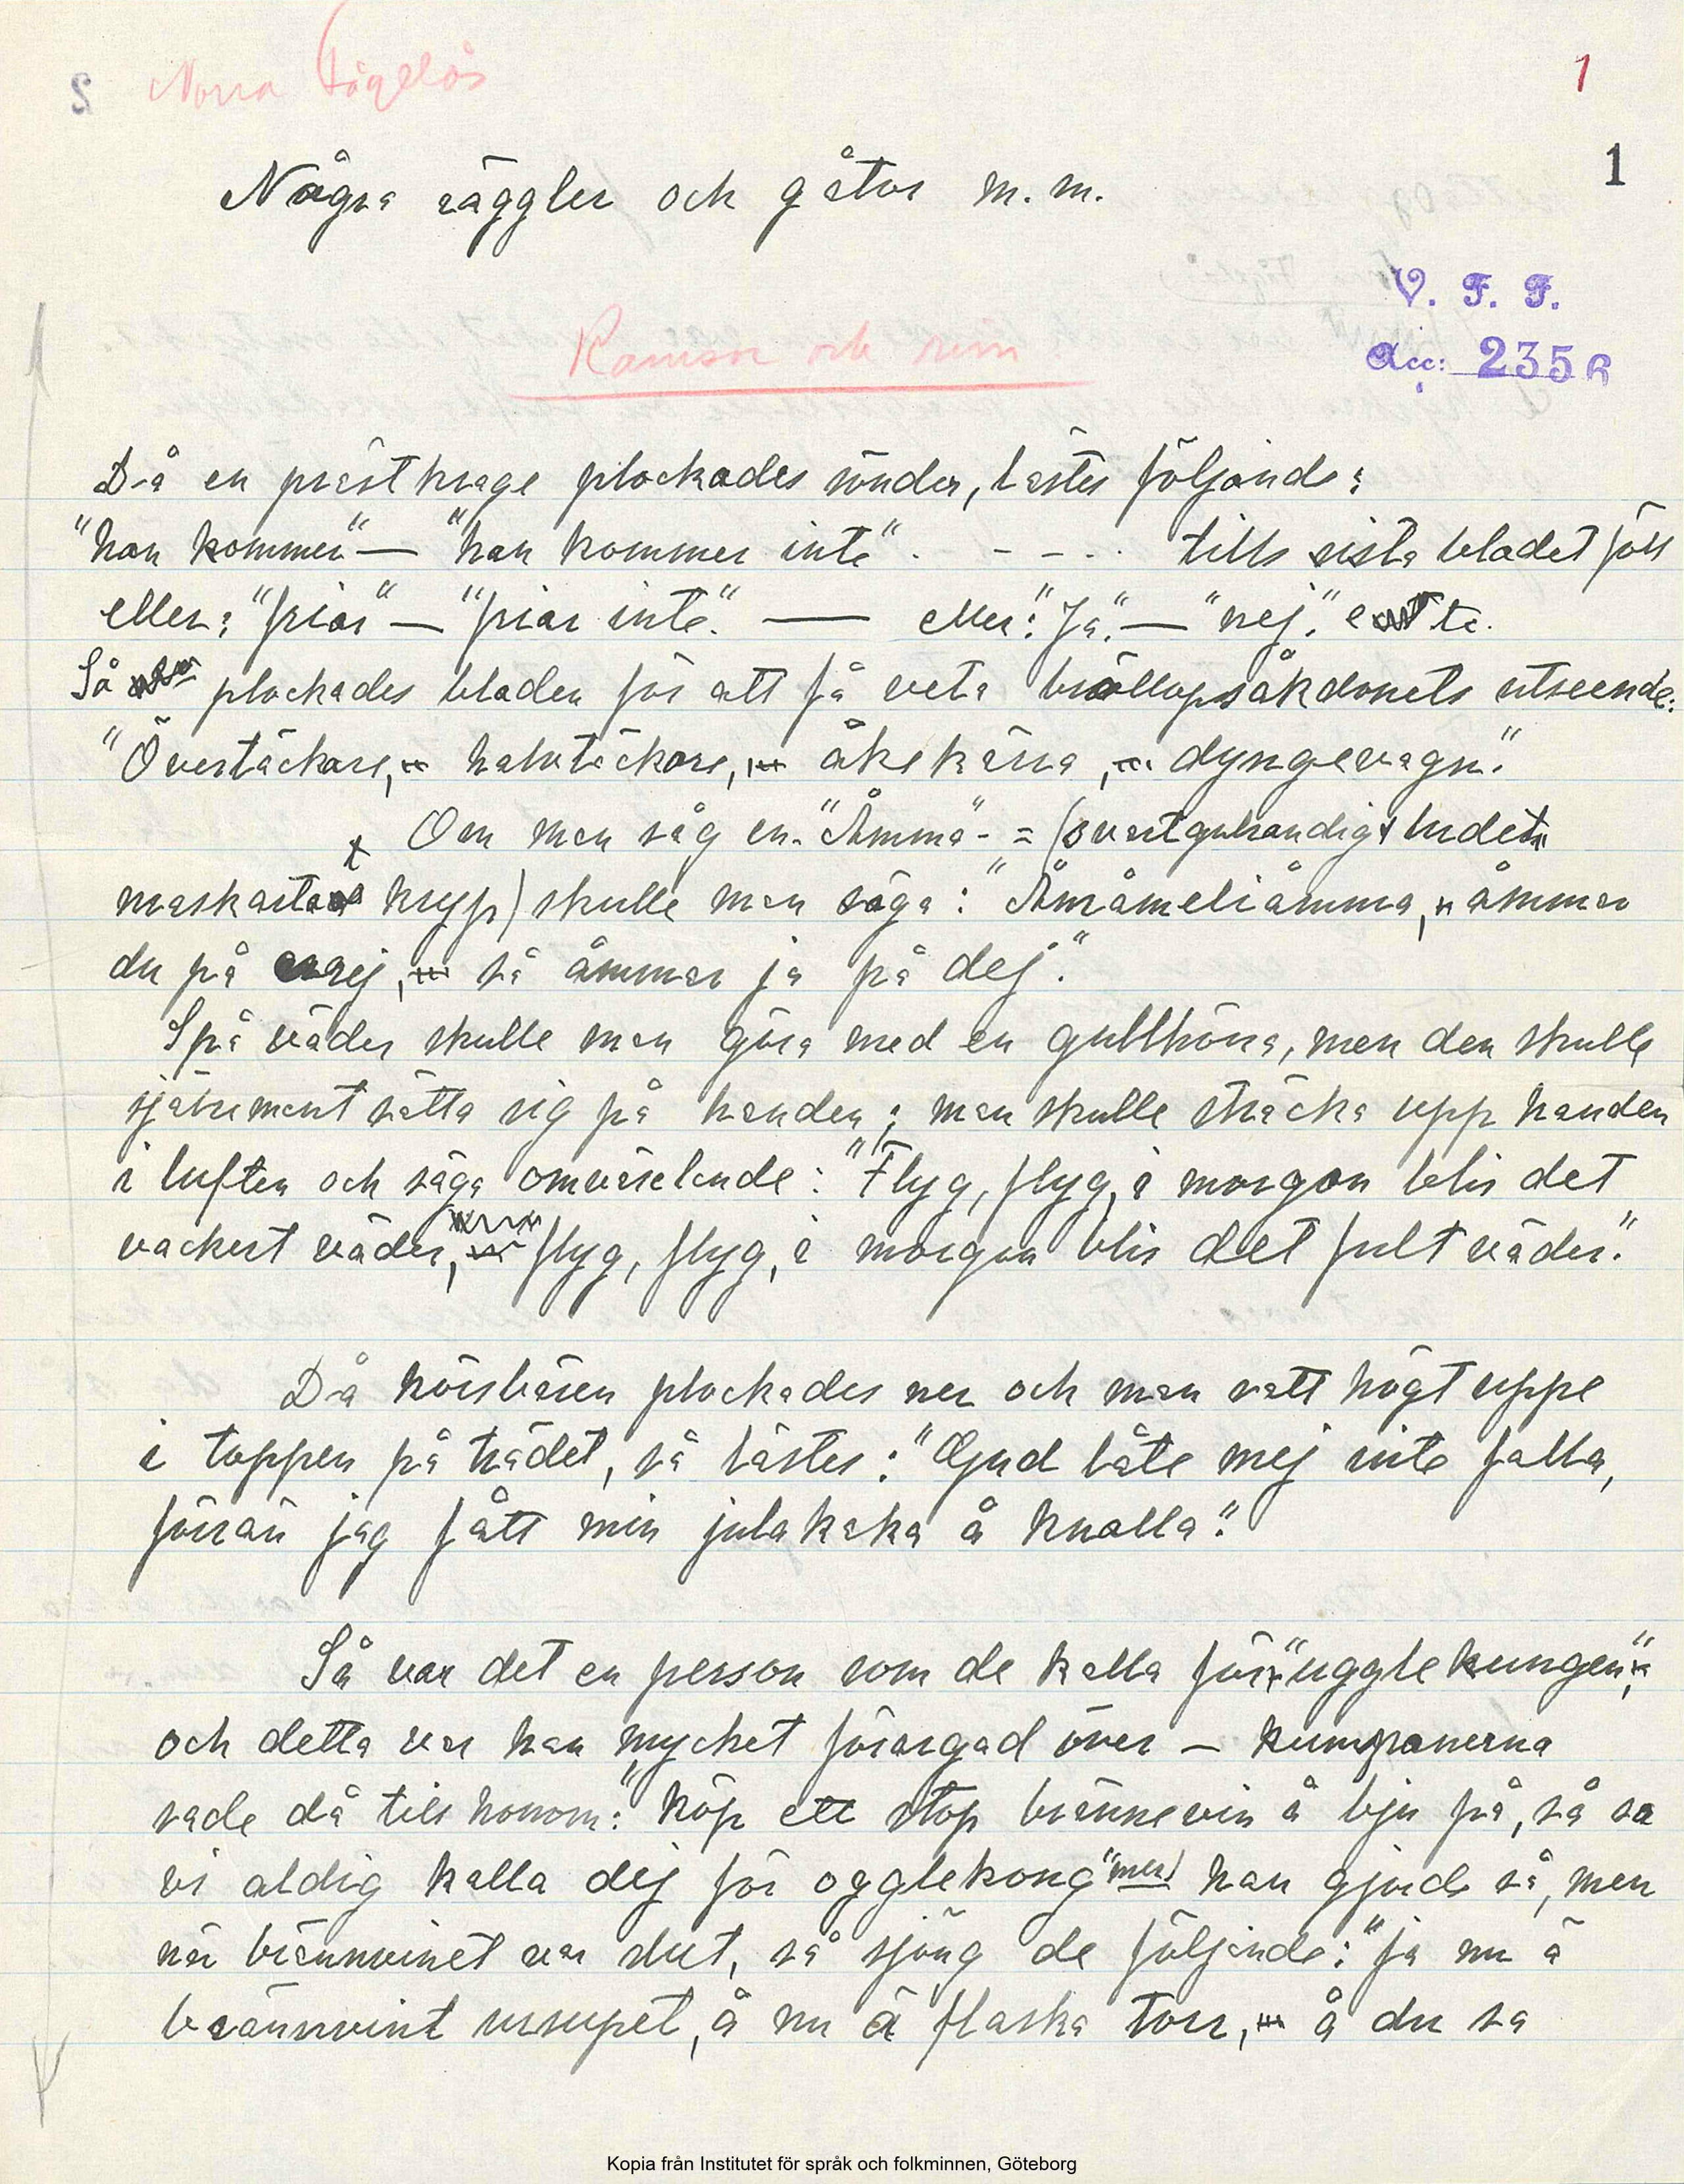 S Norra Fågelås
1
1
Några räggler och gåtor m.m.
V. F. F.
Acc: 2356
Ramsor och rim
Då en prästkrage plockades sönder, lästes följande:
"han kommer" — "han kommer inte" . - - . . tills sista bladet föll
eller: "friar" — "friar inte." — eller: "Ja." — "nej."
Så plockades bladen för att få veta bröllopsåkdonets utseende:
"Övertäckare, halvtäckare, åkekärra, dyngevagn."
Om man såg en "Åmma" = (svartguhandigt ludet
maskartat kryp) skulle man säga: "Åmåmeliåmma, åmmar
du på mej, så åmmar ja på dej."
Spå väder skulle man göra med en gullhöna, men den skulle
självmant sätta sig på handen; man skulle sträcka upp handen
i luften och säga omväxlande: "Flyg, flyg, i morgon blir det
vackert väder, flyg, flyg, i morgon blir det fult väder."
Då körsbären plockades ner och man satt högt uppe
i toppen på trädet, så lästes: "Gud låte mej inte falla,
förrän jag fått min julakaka å knalla."
Så var det en person som de kalla för "ugglekungen",
och detta var han mycket förargad över — kumpanerna
sade då till honom: "köp ett stop brännevin å bju på, så sa
vi aldig kalla dej för ogglekong" mer! han gjorde så, men
när brännvinet var slut, så sjöng de följande: "ja nu ä
brännvint ursupet, å nu ä flaska torr, å du sa
Kopia från Institutet för språk och folkminnen, Göteborg